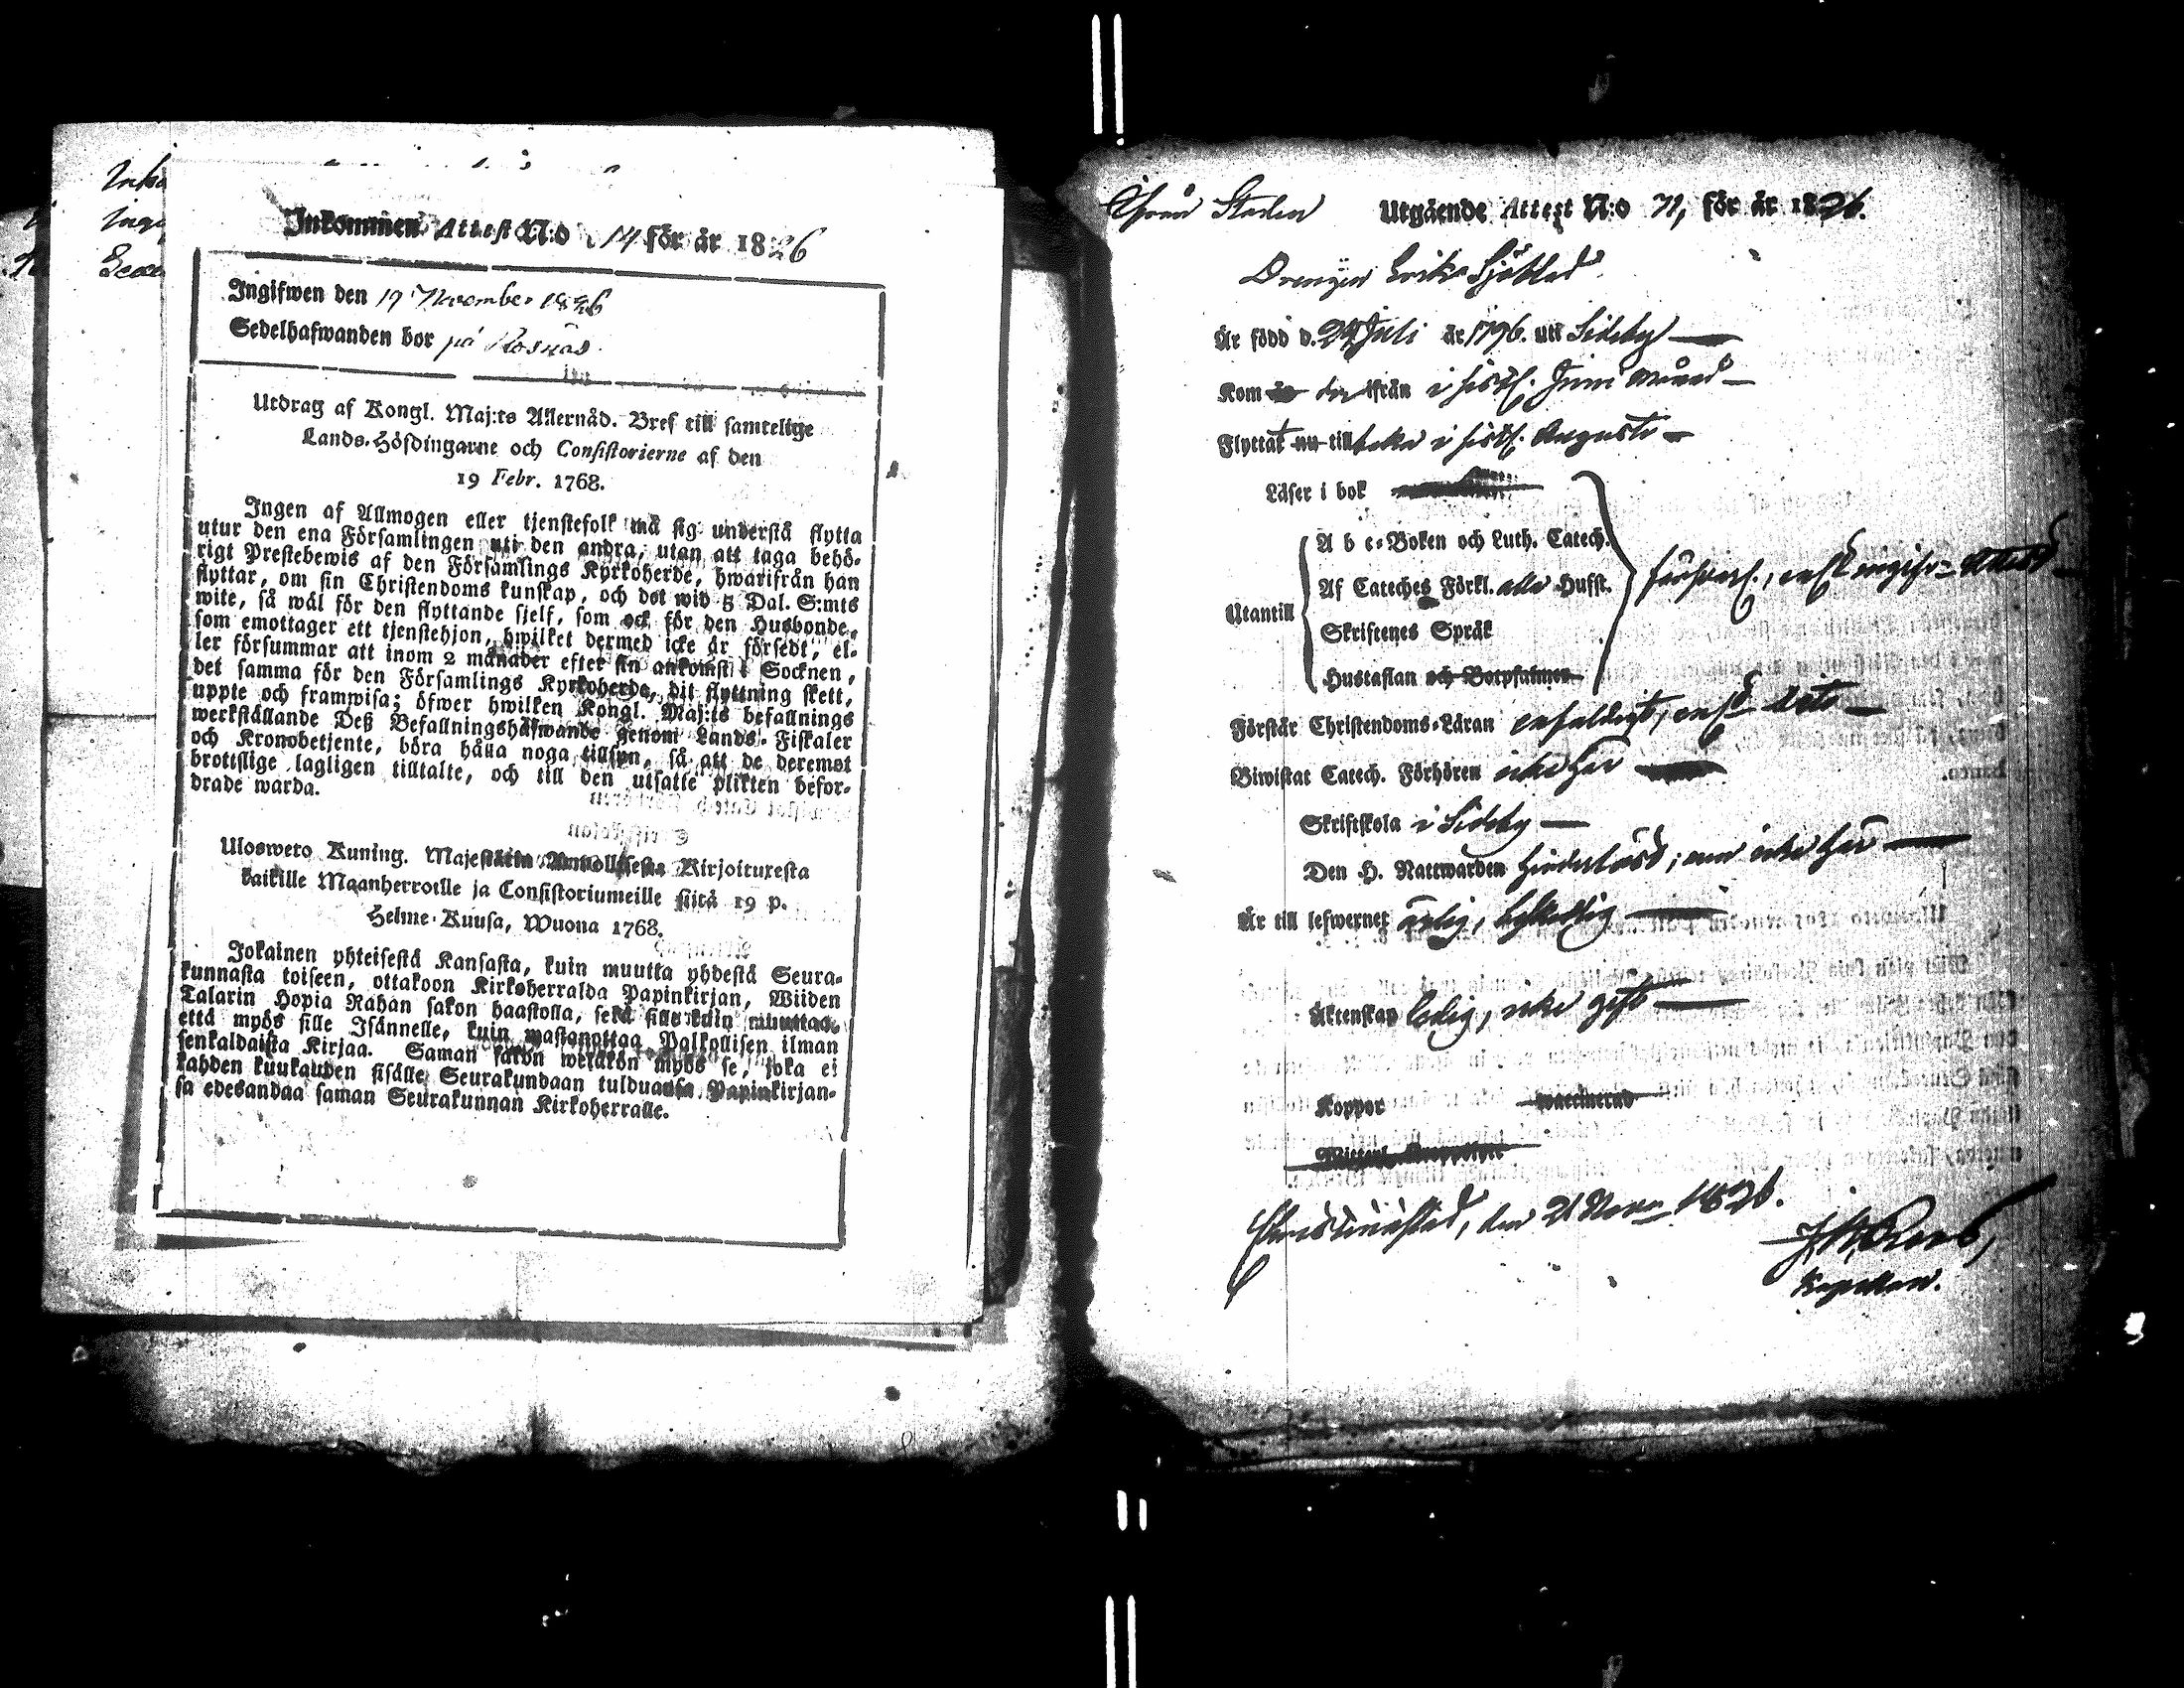 Inko
Inkommen Attest N:o 14 för år 1826
Ingifwen den 17 November 1826
Sedelhafwanden bor på Rosnäs.
Utdrag af Kongl. Maj:ts Allernåd. Bref till samtelige
Lands-Höfdingarne och Consistorierne af den
19 Febr. 1768.
Ingen af Allmogen eller tjenstefolk må sig understå flytta
utur den ena Församlingen uti den andra, utan att taga behö-
rigt Prestebewis af den Församlings Kyrkoherde, hwarifrån han
flyttar, om sin Christendoms kunskap, och det wid 5 Dal. S:mts
wite, så wäl för den flyttande sjelf, som ock för den Husbonde,
som emottager ett tjenstehjon, hwilket dermed icke är försedt, el-
ler försummar att inom 2 månader efter sin ankomst i Socknen,
det samma för den Församlings Kyrkoherde, dit flyttning skett,
uppte och framwisa; öfwer hwilken Kongl. Maj:ts befallnings
werkställande Deß Befallningshafwande genom Lands-Fiskaler
och Kronobetjente, böra hålla noga tillsyn, så att de deremot
brottslige lagligen tilltalte, och till den utsatte plikten befor-
drade warda.
Ulosweto Kuning. Majestätin Armollisesta Kirjoituxesta
kaikille Maanherroille ja Consistoriumeille siitä 19 p.
Helme-Kuusa, Wuona 1768.
Jokainen yhteisestä Kansasta, kuin muutta yhdestä Seura-
kunnasta toiseen, ottakoon Kirkoherralda Papinkirjan, Wiiden
Talarin Hopia Rahan sakon haastolla, sekä sille kuin muuttaa,
että myös sille Isännelle, kuin wastanottaa Palkollisen ilman
senkaldaista Kirjaa. Saman sakon wetäkön myös se, joka ei
kahden kuukauden sisälle Seurakundaan tulduansa Papinkirjan-
sa edesandaa saman Seurakunnan Kirkoherralle.
från Staden Utgående Attest N:o 71, för år 1826.
Drengen Erik Sjöblad
Är född d. 24 Juli år 1796. uti Sideby
Kom ifrån i sistl. Juni månad
Flyttat nu till baka i sistl. Augusti
Läser i bok
A b c-Boken och Luth. Catech.
Af Cateches Förkl. alla Hufst.
Utantill
Skriftenes Språk
Hustaflan och Botpsalmen
Förstår Christendoms-Läran enfaldigt, enl. dito
Biwistat Catech. Förhören icke här
Skriftskola i Sideby
Den H. Nattwarden icke här
Är till lefwernet ärlig,
Äktenskap ledig, icke gift
Koppor waccinerad
Christinæstad, den 21 Nov. 1826.
Kapellan.